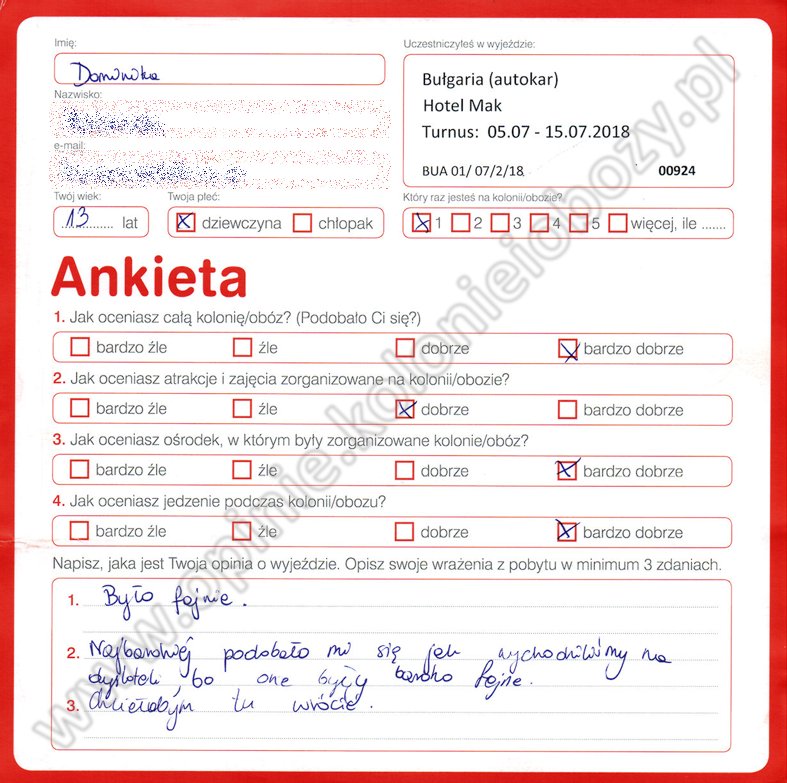 Imię:
Uczestniczyłeś w wyjeździe:
Dominika
Bułgaria (autokar)
Hotel Mak
Turnus: 05.07 - 15.07.2018
BUA 01/ 07/2/18
00924
Nazwisko:
e-mail:
Twój wiek:
Twoja płeć:
Który raz jesteś na kolonii/obozie?
13 lat
X dziewczyna chłopak
X 1 2 3 4 5 więcej, ile .......
Ankieta
1. Jak oceniasz całą kolonię/obóz? (Podobało Ci się?)
bardzo źle źle dobrze X bardzo dobrze
2. Jak oceniasz atrakcje i zajęcia zorganizowane na kolonii/obozie?
bardzo źle źle X dobrze bardzo dobrze
3. Jak oceniasz ośrodek, w którym były zorganizowane kolonie/obóz?
bardzo źle źle dobrze X bardzo dobrze
4. Jak oceniasz jedzenie podczas kolonii/obozu?
bardzo źle źle dobrze X bardzo dobrze
Napisz, jaka jest Twoja opinia o wyjeździe. Opisz swoje wrażenia z pobytu w minimum 3 zdaniach.
1. Było fajnie.
2. Najbardziej podobało mi się jak wychodziliśmy na
dyskoteki, bo one były bardzo fajne.
3. Chciałabym tu wrócić.
www.opinie.kolonieiobozy.pl